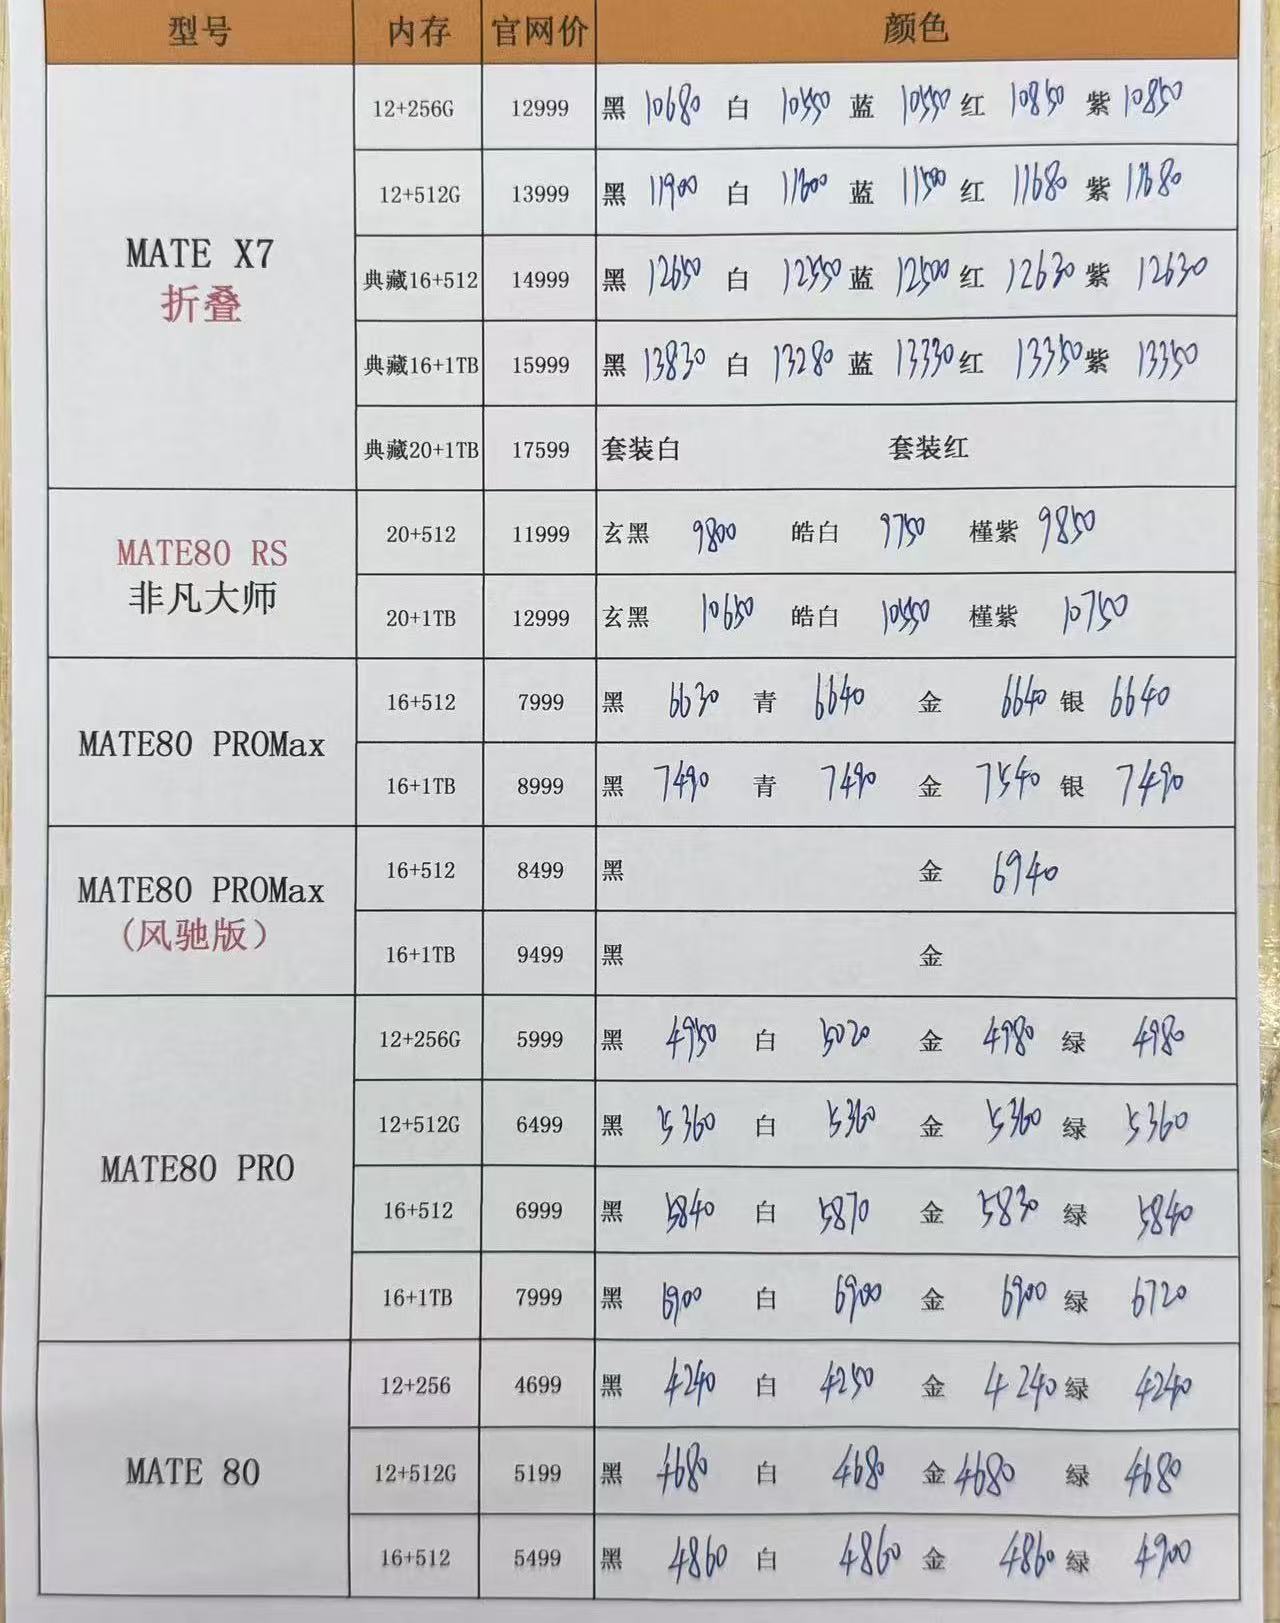 型号 内存 官网价 颜色
12+256G 12999 黑 10680 白 10550 蓝 10550 红 10850 紫 10850
12+512G 13999 黑 11900 白 11600 蓝 11500 红 11680 紫 11680
MATE X7
折叠
典藏16+512 14999 黑 12650 白 12550 蓝 12500 红 12630 紫 12630
典藏16+1TB 15999 黑 13830 白 13280 蓝 13330 红 13350 紫 13350
典藏20+1TB 17599 套装白 套装红
MATE80 RS
非凡大师
20+512 11999 玄黑 9800 皓白 9750 槿紫 9850
20+1TB 12999 玄黑 10650 皓白 10550 槿紫 10750
MATE80 PROMax
16+512 7999 黑 6630 青 6640 金 6640 银 6640
16+1TB 8999 黑 7490 青 7490 金 7540 银 7490
MATE80 PROMax
(风驰版）
16+512 8499 黑 金 6940
16+1TB 9499 黑 金
MATE80 PRO
12+256G 5999 黑 4950 白 5020 金 4980 绿 4980
12+512G 6499 黑 5360 白 5360 金 5360 绿 5360
16+512 6999 黑 5840 白 5870 金 5830 绿 5840
16+1TB 7999 黑 6900 白 6900 金 6900 绿 6720
MATE 80
12+256 4699 黑 4240 白 4250 金 4240 绿 4240
12+512G 5199 黑 4680 白 4680 金 4680 绿 4680
16+512 5499 黑 4860 白 4860 金 4860 绿 4900